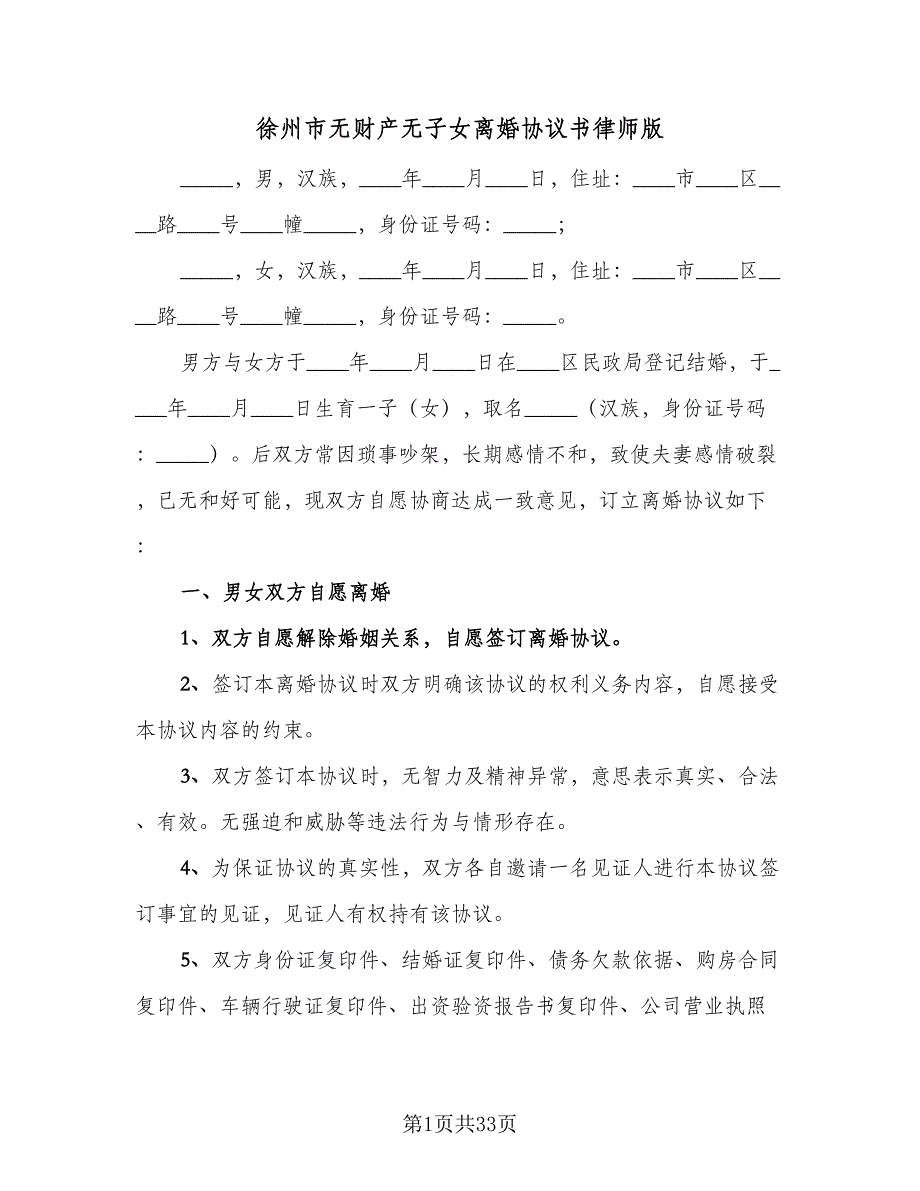 徐州市无财产无子女离婚协议书律师版
_____，男，汉族，____年____月____日，住址：____市____区__
__路____号____幢_____，身份证号码：_____；
_____，女，汉族，____年____月____日，住址：____市____区__
__路____号____幢_____，身份证号码：_____。
男方与女方于____年____月____日在____区民政局登记结婚，于_
___年____月____日生育一子（女），取名_____（汉族，身份证号码
：_____）。后双方常因琐事吵架，长期感情不和，致使夫妻感情破裂
，已无和好可能，现双方自愿协商达成一致意见，订立离婚协议如下
：
一、男女双方自愿离婚
1、双方自愿解除婚姻关系，自愿签订离婚协议。
2、签订本离婚协议时双方明确该协议的权利义务内容，自愿接受
本协议内容的约束。
3、双方签订本协议时，无智力及精神异常，意思表示真实、合法
、有效。无强迫和威胁等违法行为与情形存在。
4、为保证协议的真实性，双方各自邀请一名见证人进行本协议签
订事宜的见证，见证人有权持有该协议。
5、双方身份证复印件、结婚证复印件、债务欠款依据、购房合同
复印件、车辆行驶证复印件、出资验资报告书复印件、公司营业执照
第1页共33页